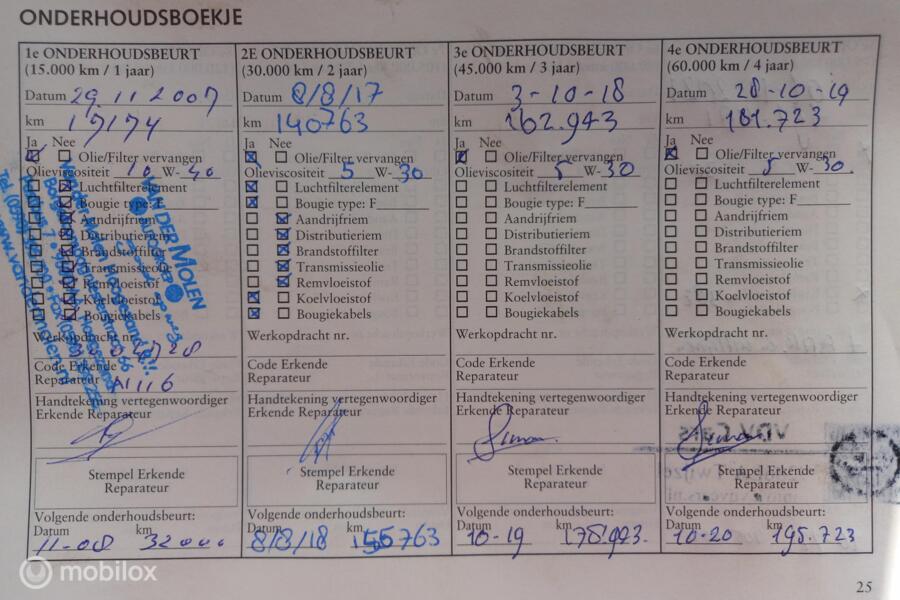 ONDERHOUDSBOEKJE
1e ONDERHOUDSBEURT
(15.000 km / 1 jaar)
Datum 29 11 2007
km 17174
Ja Nee
Olie/Filter vervangen
Olieviscositeit 10 W-40
Luchtfilterelement
Bougie type: F
Aandrijfriem
Distributieriem
Brandstoffilter
Transmissieolie
Remvloeistof
Koelvloeistof
Bougiekabels
Werkopdracht nr.
Code Erkende
Reparateur N116
Handtekening vertegenwoordiger
Erkende Reparateur
Stempel Erkende
Reparateur
Volgende onderhoudsbeurt:
Datum km
11-08 32000
VAN DER MOLEN
2E ONDERHOUDSBEURT
(30.000 km / 2 jaar)
Datum 8/8/17
km 140763
Ja Nee
Olie/Filter vervangen
Olieviscositeit 5 W-30
Luchtfilterelement
Bougie type: F
Aandrijfriem
Distributieriem
Brandstoffilter
Transmissieolie
Remvloeistof
Koelvloeistof
Bougiekabels
Werkopdracht nr.
Code Erkende
Reparateur
Handtekening vertegenwoordiger
Erkende Reparateur
Stempel Erkende
Reparateur
Volgende onderhoudsbeurt:
Datum km
8/8/18 155763
3e ONDERHOUDSBEURT
(45.000 km / 3 jaar)
Datum 3-10-18
km 162.943
Ja Nee
Olie/Filter vervangen
Olieviscositeit 5 W-30
Luchtfilterelement
Bougie type: F
Aandrijfriem
Distributieriem
Brandstoffilter
Transmissieolie
Remvloeistof
Koelvloeistof
Bougiekabels
Werkopdracht nr.
Code Erkende
Reparateur
Handtekening vertegenwoordiger
Erkende Reparateur
Simon
Stempel Erkende
Reparateur
Volgende onderhoudsbeurt:
Datum km
10-19 178.943.
4e ONDERHOUDSBEURT
(60.000 km / 4 jaar)
Datum 28-10-19
km 181.723
Ja Nee
Olie/Filter vervangen
Olieviscositeit 5 W-30
Luchtfilterelement
Bougie type: F
Aandrijfriem
Distributieriem
Brandstoffilter
Transmissieolie
Remvloeistof
Koelvloeistof
Bougiekabels
Werkopdracht nr.
Code Erkende
Reparateur
Handtekening vertegenwoordiger
Erkende Reparateur
Simon
Stempel Erkende
Reparateur
Volgende onderhoudsbeurt:
Datum km
10-20 195.723
mobilox
25